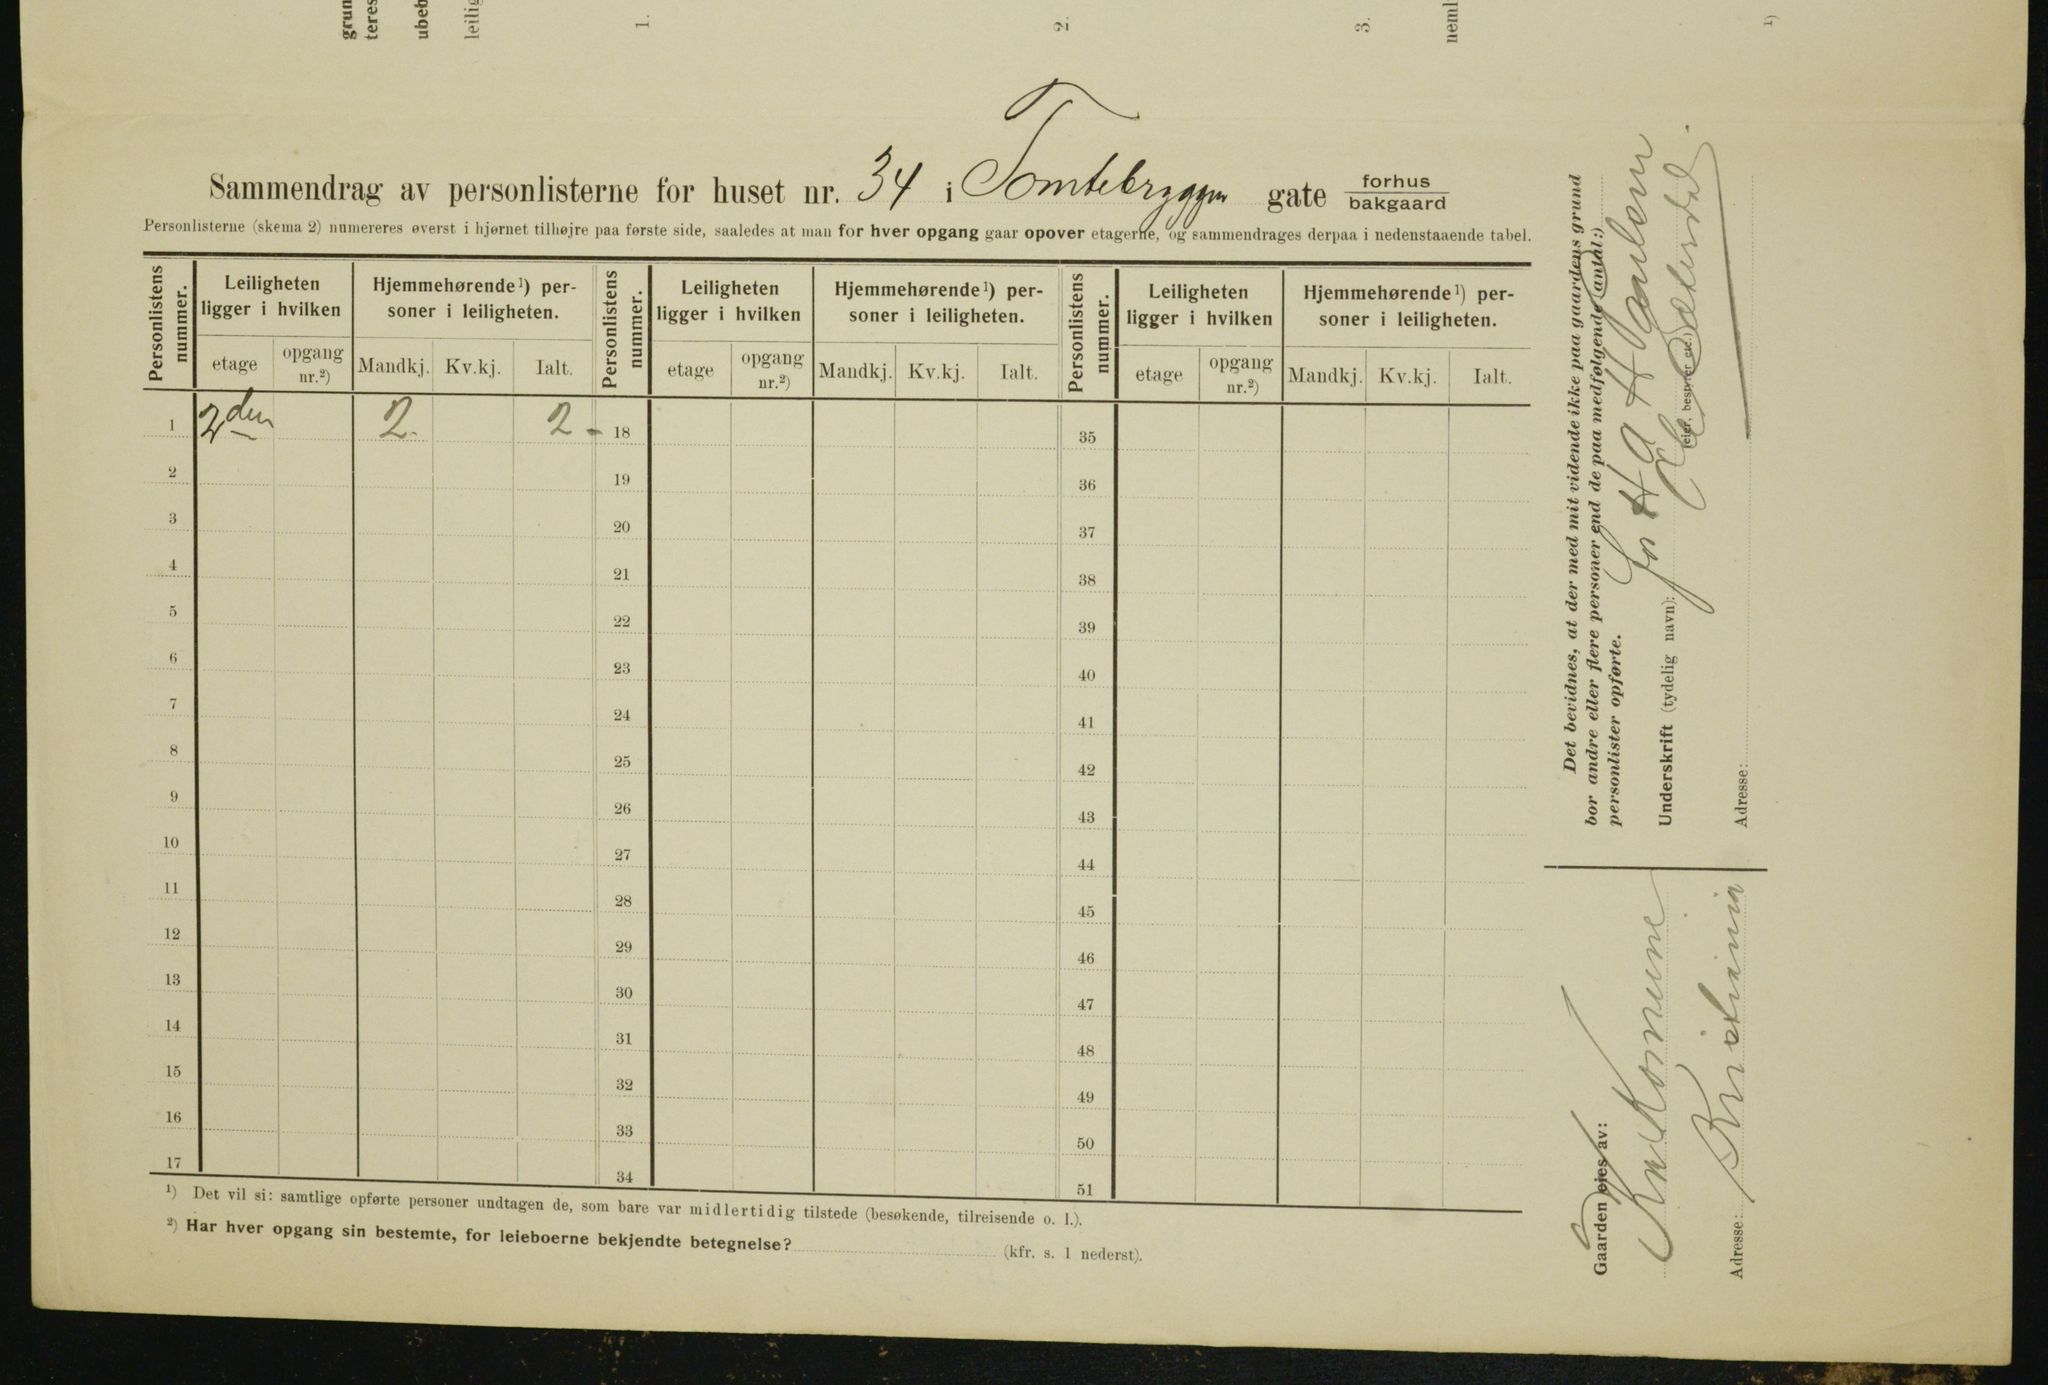 grun
teres
ubeb
leilig
1.
2.
3.
neml
1)
Sammendrag av personlisterne for huset nr. 34 i Tomtebryggen gate forhus
bakgaard
Personlisterne (skema 2) numereres øverst i hjørnet tilhøjre paa første side, saaledes at man for hver opgang gaar opover etagerne, og sammendrages derpaa i nedenstaaende tabel.
Personlistens nummer. Leiligheten ligger i hvilken Hjemmehørende¹) personer i leiligheten. Personlistens nummer. Leiligheten ligger i hvilken Hjemmehørende¹) personer i leiligheten. Personlistens nummer. Leiligheten ligger i hvilken Hjemmehørende¹) personer i leiligheten.
etage opgang nr.²) Mandkj. Kv.kj. Ialt. etage opgang nr.²) Mandkj. Kv.kj. Ialt. etage opgang nr.²) Mandkj. Kv.kj. Ialt.
1 2den 2. 2 - 18 35
2 19 36
3 20 37
4 21 38
5 22 39
6 23 40
7 24 41
8 25 42
9 26 43
10 27 44
11 28 45
12 29 46
13 30 47
14 31 48
15 32 49
16 33 50
17 34 51
¹) Det vil si: samtlige opførte personer undtagen de, som bare var midlertidig tilstede (besøkende, tilreisende o. l.).
²) Har hver opgang sin bestemte, for leieboerne bekjendte betegnelse? (kfr. s. 1 nederst).
Det bevidnes, at der med mit vidende ikke paa gaardens grund
bor andre eller flere personer end de paa medfølgende (antal:)
personlister opførte.
for H A H
Underskrift (tydelig navn):
(eier, bestyrer etc.)
Adresse:
Gaarden eies av:
Kommune
Adresse: Kristiania